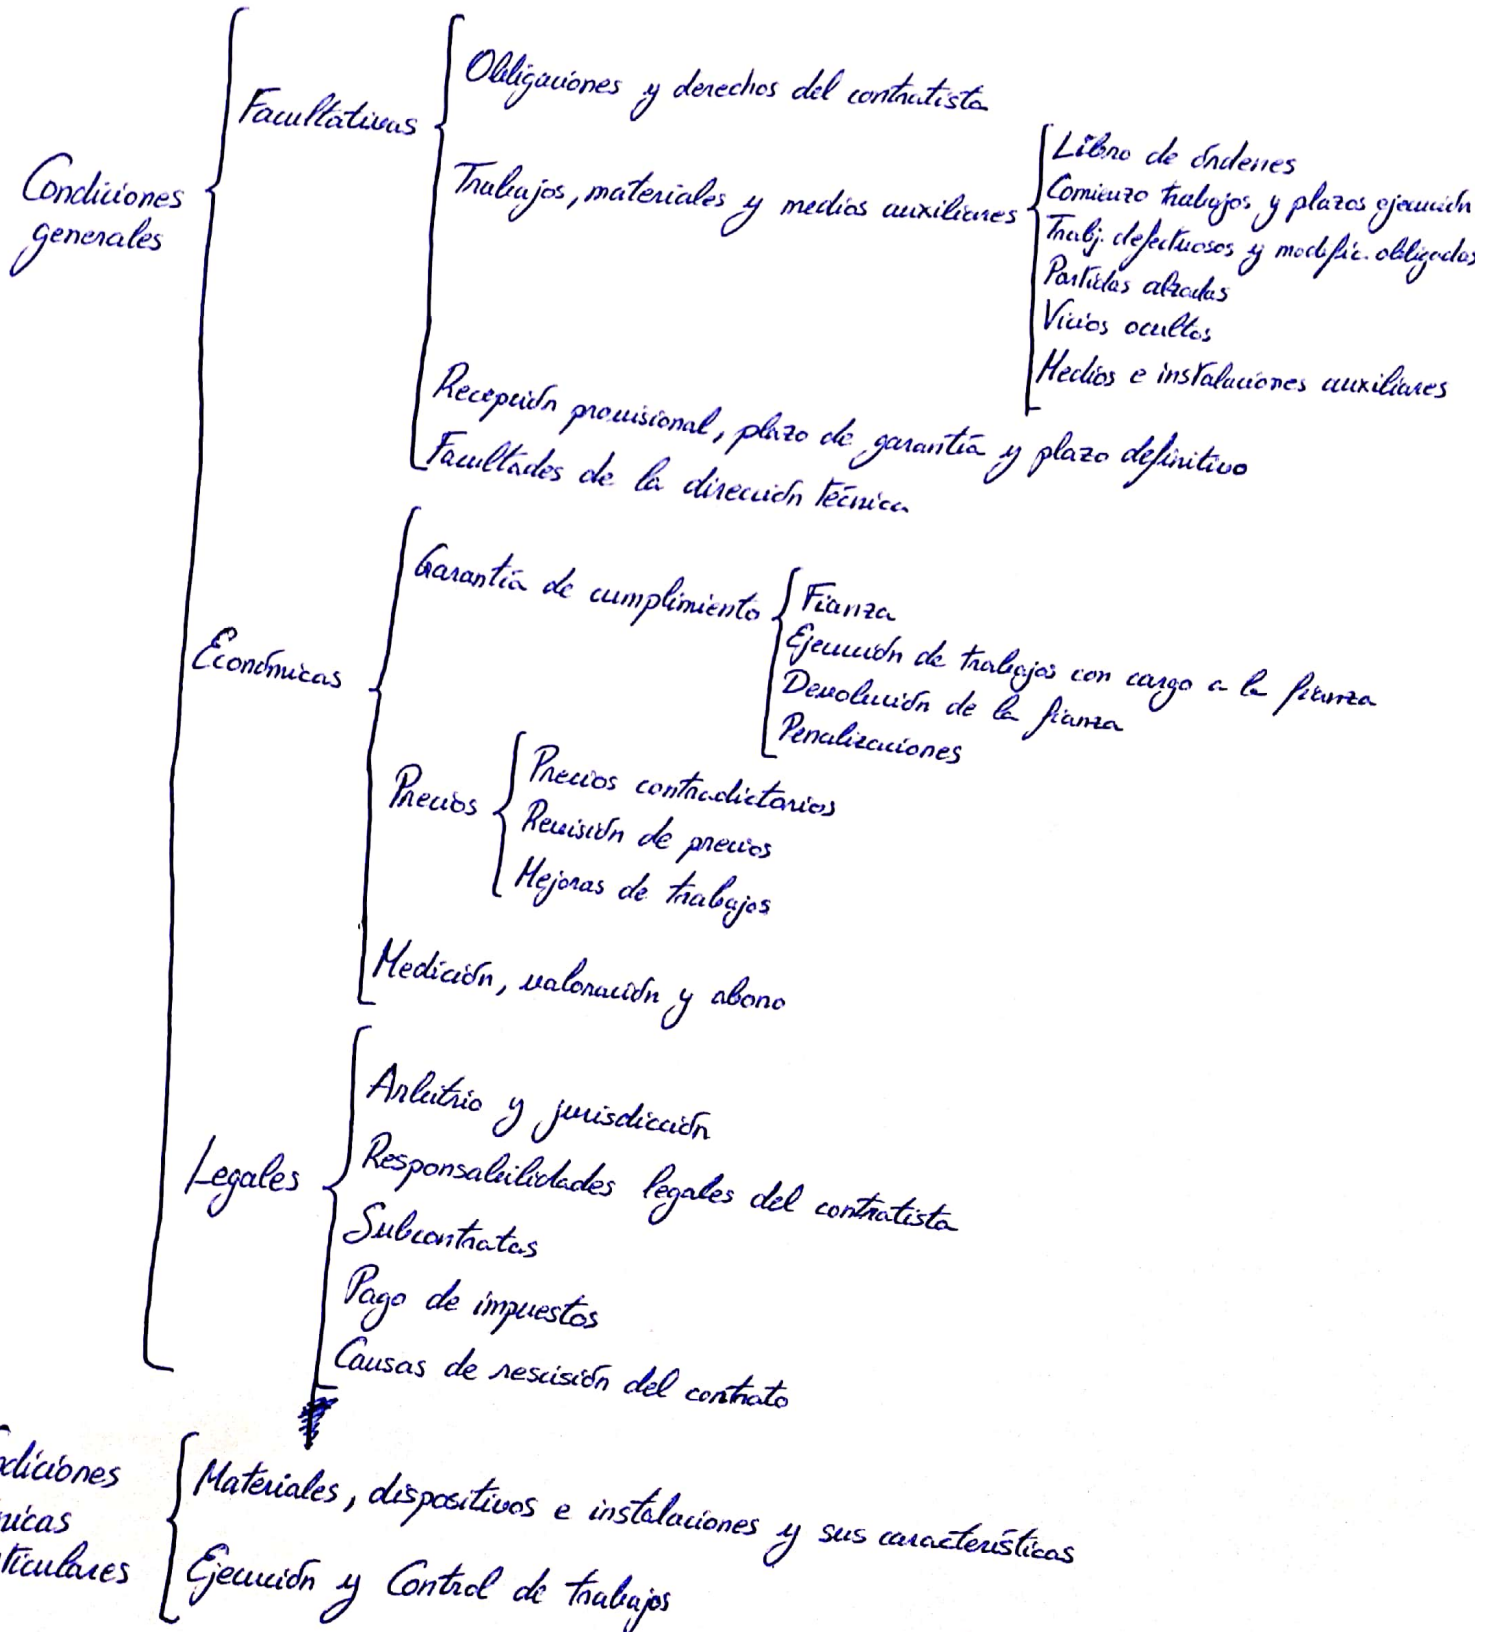 Condiciones
generales
Facultativas
Obligaciones y derechos del contratista
Trabajos, materiales y medios auxiliares
Libro de órdenes
Comienzo trabajos y plazos ejecución
Trabj. defectuosos y modific. obligadas
Partidas alzadas
Vicios ocultos
Medios e instalaciones auxiliares
Recepción provisional, plazo de garantía y plazo definitivo
Facultades de la dirección técnica
Económicas
Garantía de cumplimiento
Fianza
Ejecución de trabajos con cargo a la fianza
Devolución de la fianza
Penalizaciones
Precios
Precios contradictorios
Revisión de precios
Mejoras de trabajos
Medición, valoración y abono
Legales
Arbitrio y jurisdicción
Responsabilidades legales del contratista
Subcontratas
Pago de impuestos
Causas de rescisión del contrato
diciones
nicas
ticulares
Materiales, dispositivos e instalaciones y sus características
Ejecución y Control de trabajos